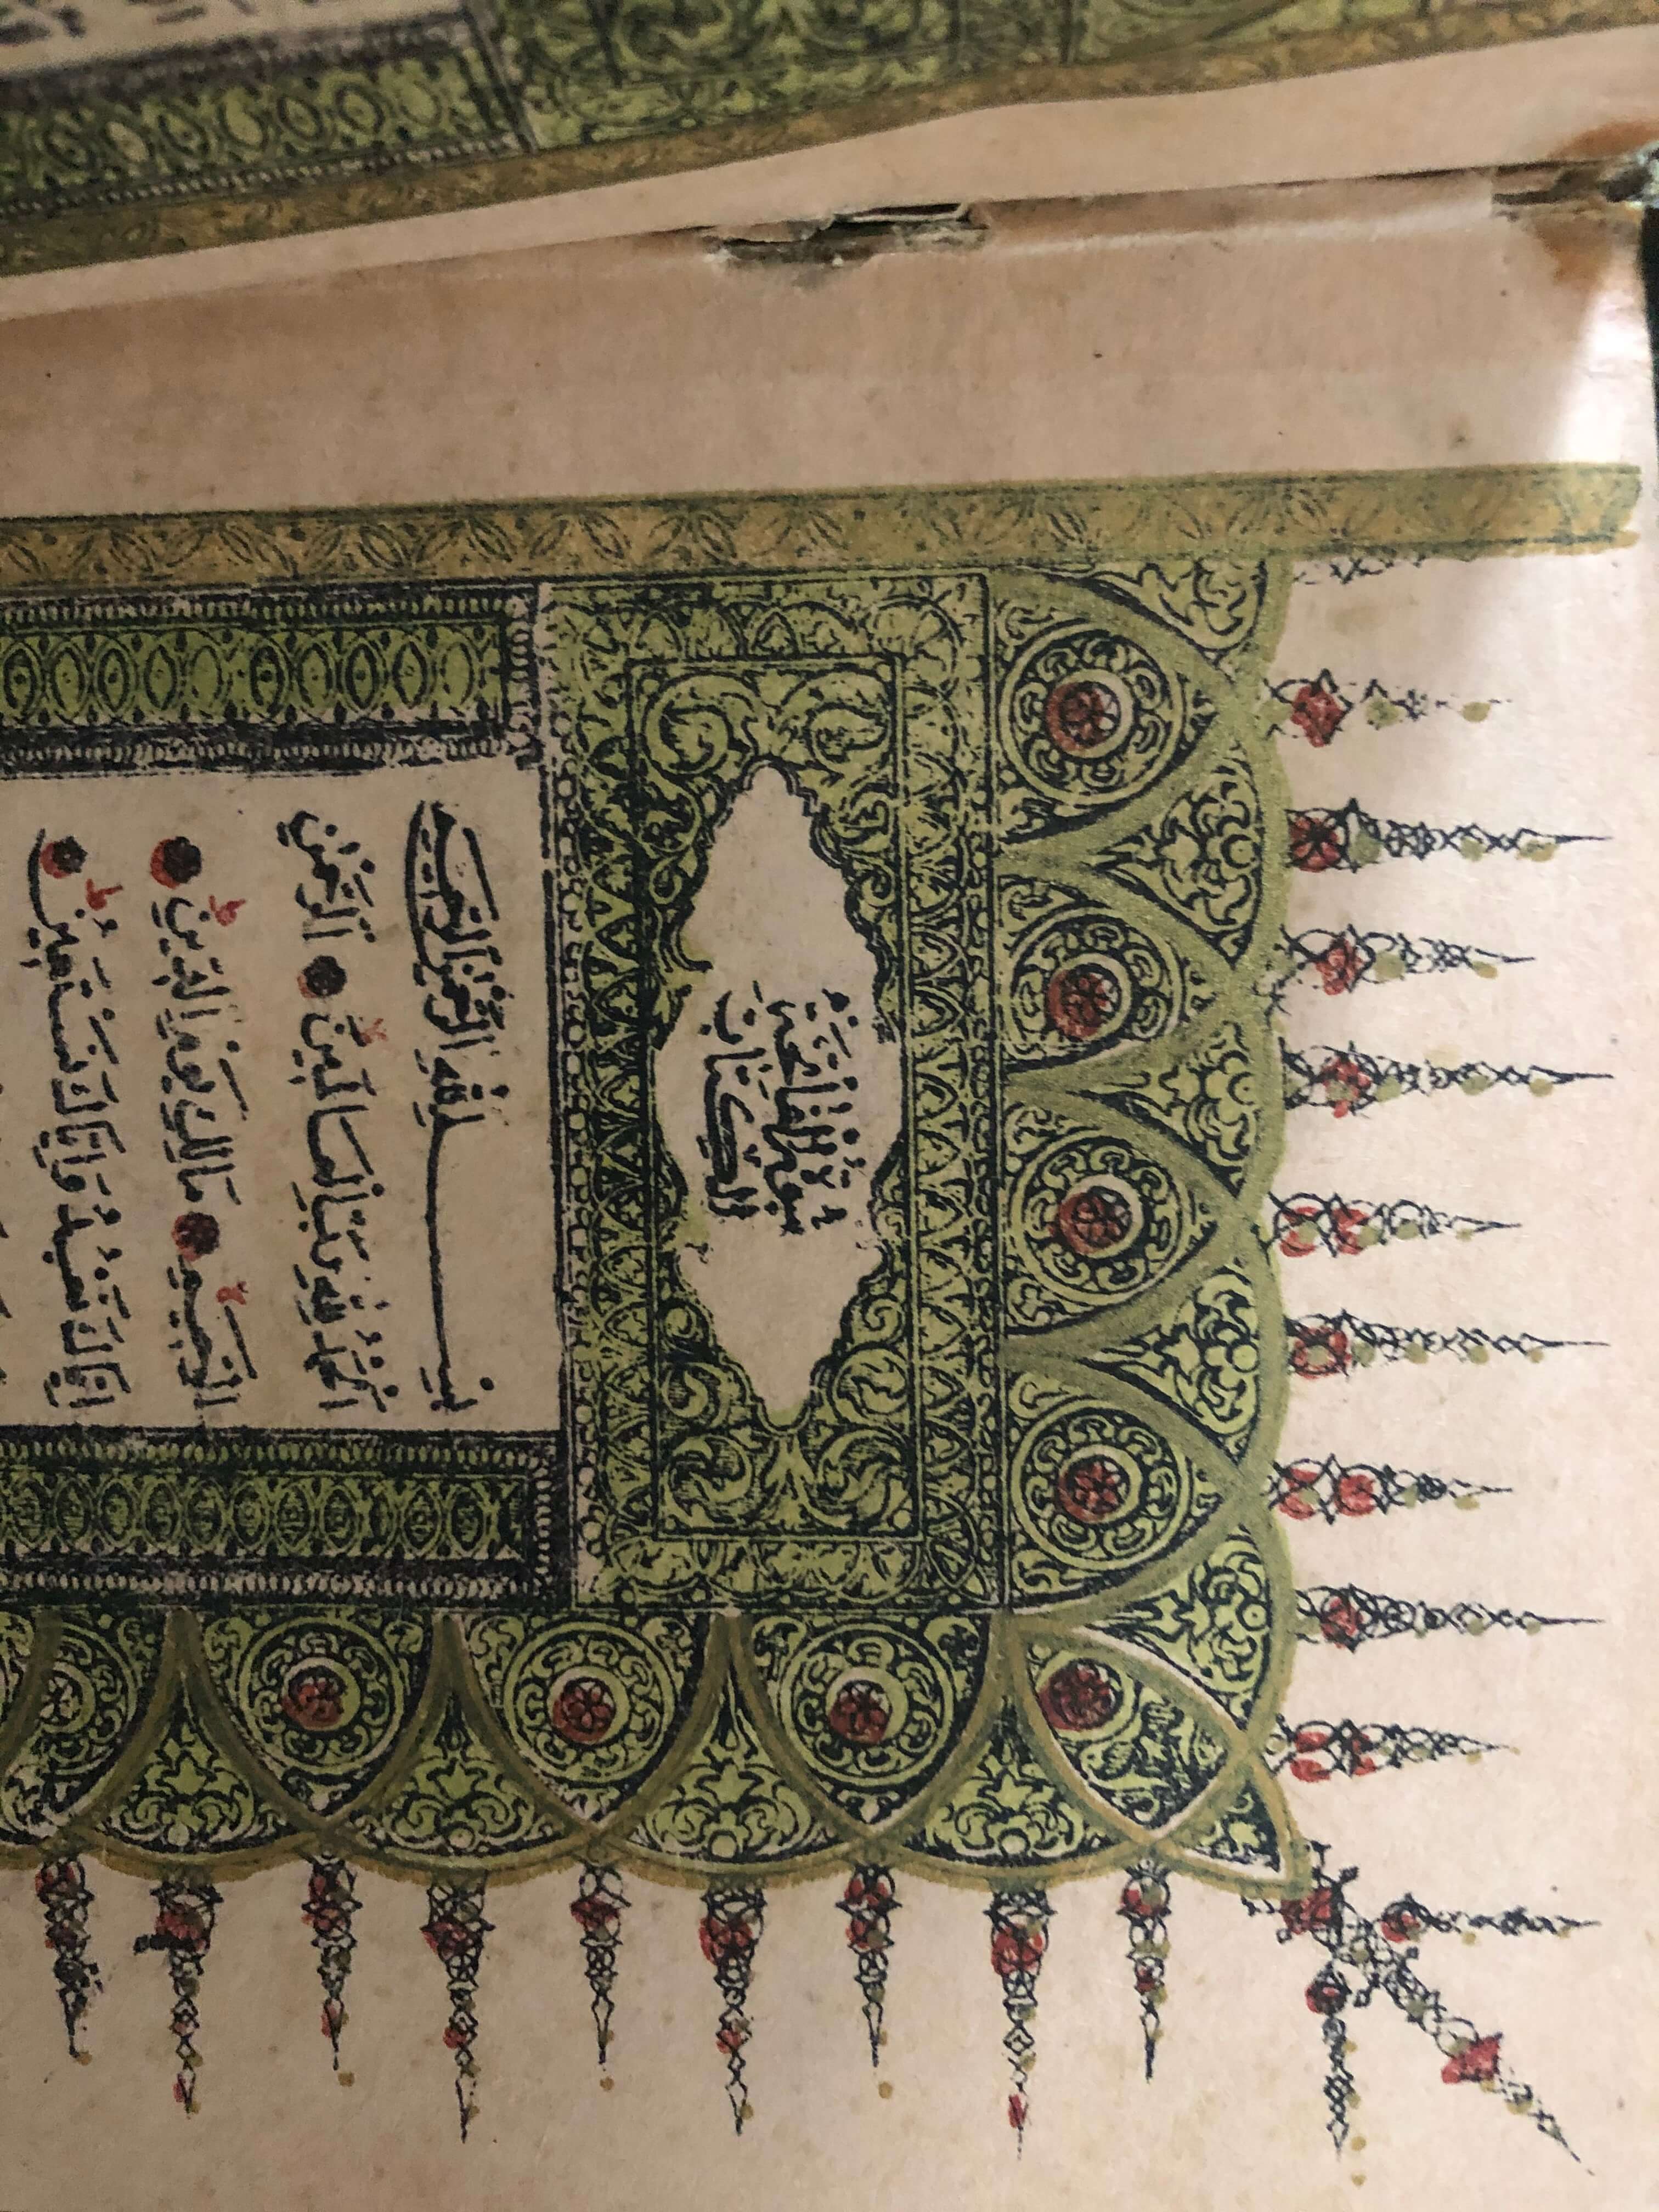 سورة فاتحة
الكتاب
بِسْمِ اللَّهِ الرَّحْمٰنِ الرَّحِيمِ
اَلْحَمْدُ لِلّٰهِ رَبِّ الْعَالَمِينَ ۙ الرَّحْمٰنِ
الرَّحِيمِ ۙ مَالِكِ يَوْمِ الدِّينِ ط
اِيَّاكَ نَعْبُدُ وَاِيَّاكَ نَسْتَعِينُ ط